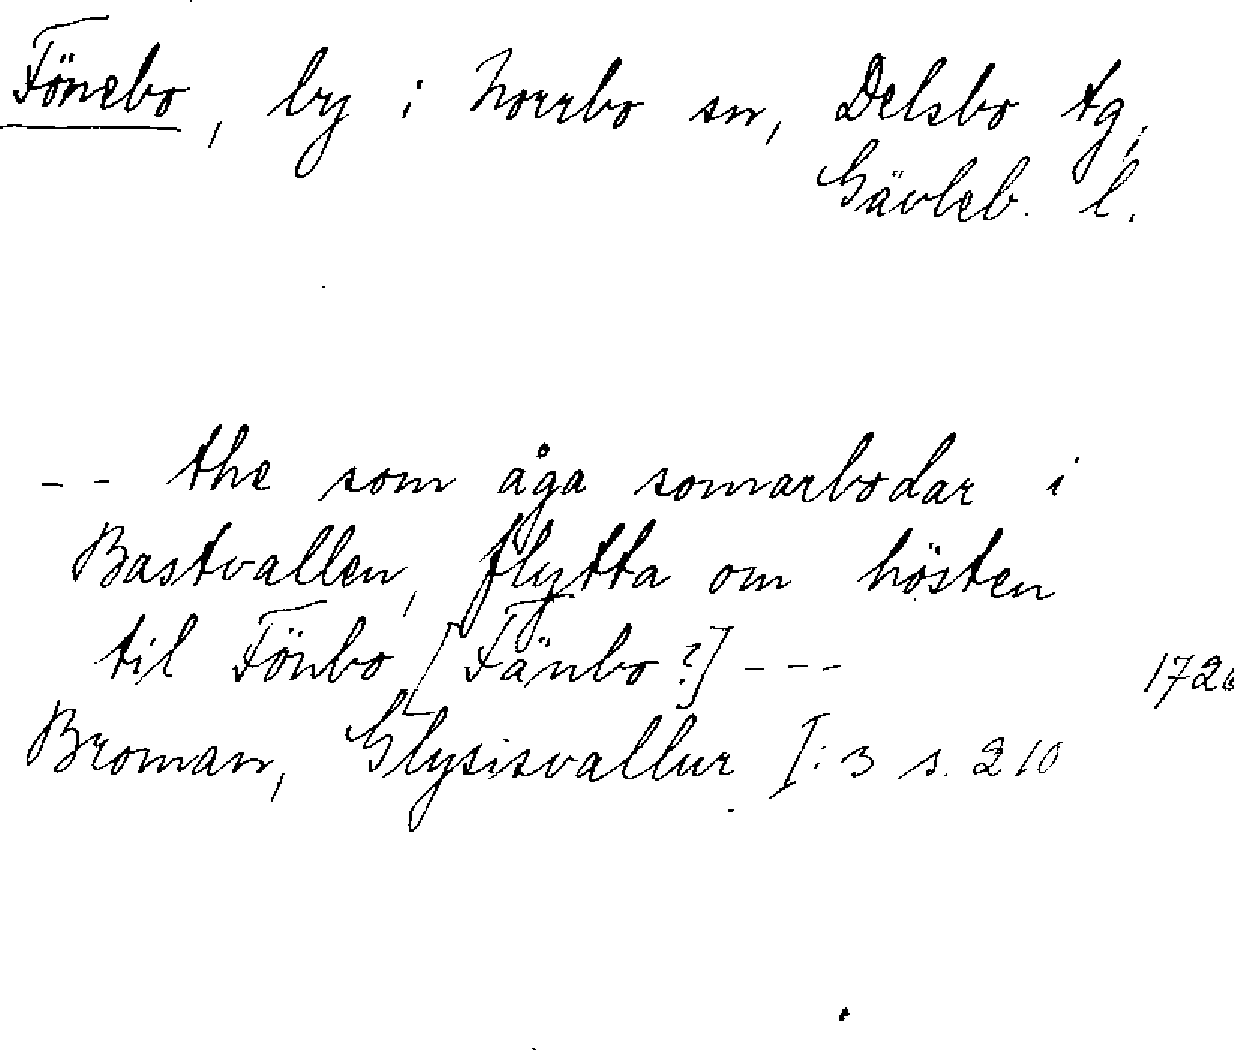 Fönebo, by i Norrbo sn, Delsbo tg,
Gävleb. l.
-- the som åga somarbodar i
Bastvallen, flytta om hösten
til Fönbo [Fänbo?] ---
1726
Broman, Glysisvallur I:3 s. 210